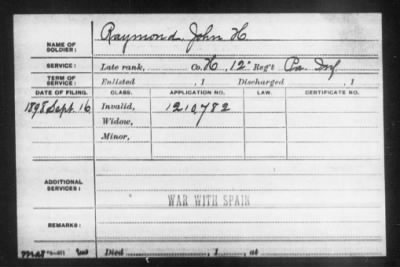 NAME OF SOLDIER: Raymond, John H
SERVICE: Late rank, Co. H, 12" Reg't Pa. Inf
TERM OF SERVICE: Enlisted , 1 Discharged , 1
DATE OF FILING. CLASS. APPLICATION NO. LAW. CERTIFICATE NO.
1898 Sept. 16 Invalid, 1210782
Widow,
Minor,
ADDITIONAL SERVICES:
WAR WITH SPAIN
REMARKS:
Died , 1 , at